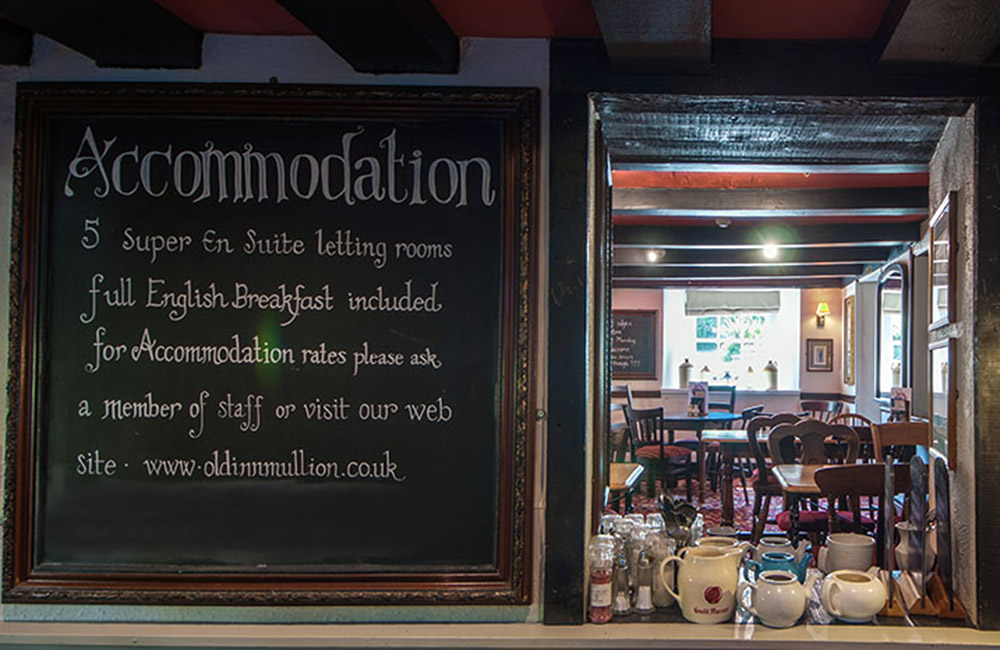 Accommodation
5 Super En Suite letting rooms
full English Breakfast included
for Accommodation rates please ask
a member of staff or visit our web
site · www.oldinnmullion.co.uk